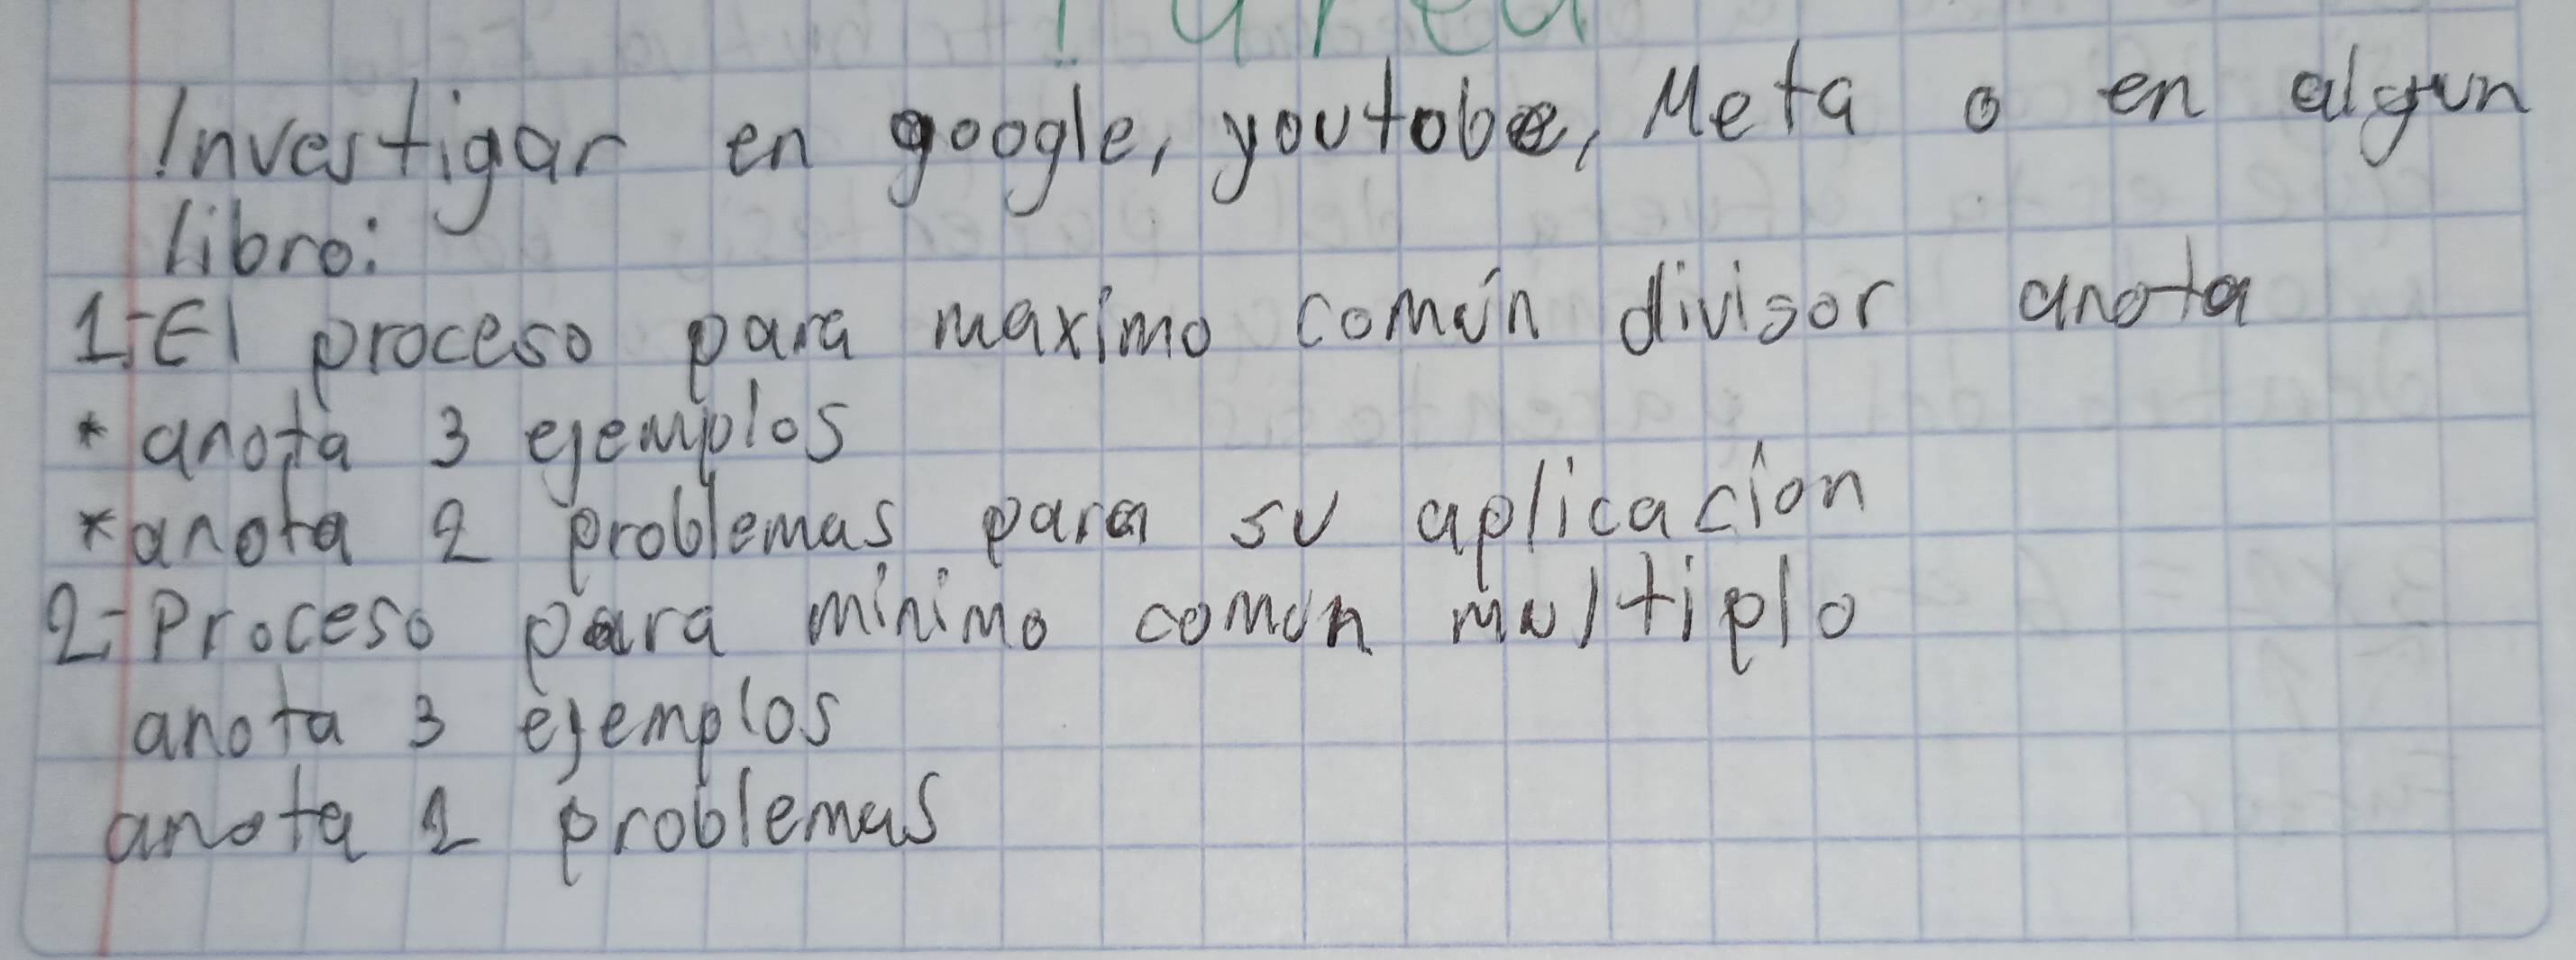 Tarea
Investigar en google, youtobe, Meta o en algun
libro:
1-El proceso para maximo común divisor anota
* anota 3 ejemplos
* anota 2 problemas para su aplicacíon
2-Proceso para mínimo común multiplo
anota 3 ejemplos
anota 2 problemas